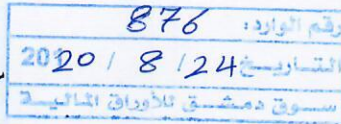 رقم الوارد: 876
التاريخ 24 / 8 / 2020
سوق دمشق للأوراق المالية